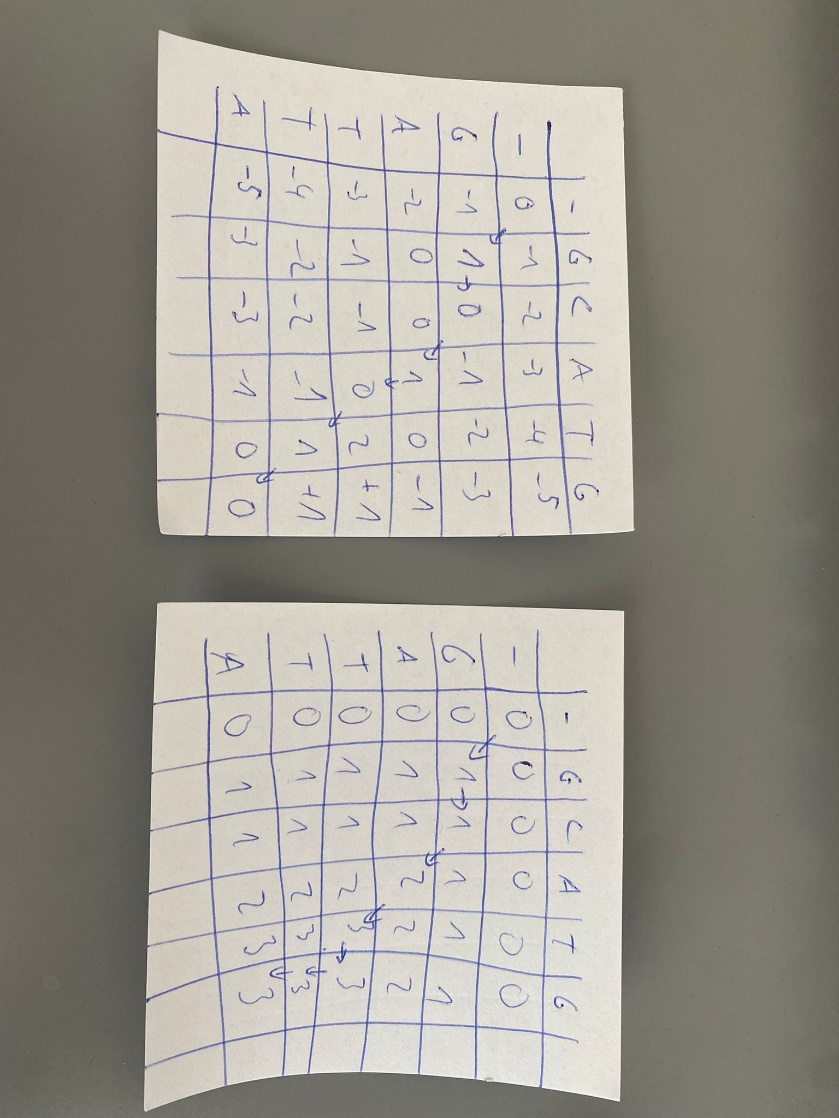 - G C A T G
- 0 -1 -2 -3 -4 -5
G -1 1 → 0 -1 -2 -3
A -2 0 0 1 0 -1
T -3 -1 -1 0 2 +1
T -4 -2 -2 -1 1 +1
A -5 -3 -3 -1 0 0
- G C A T G
- 0 0 0 0 0 0
G 0 1 → 1 1 1 1
A 0 1 1 2 2 2
T 0 1 1 2 3 → 3
T 0 1 1 2 3 3
A 0 1 1 2 3 3